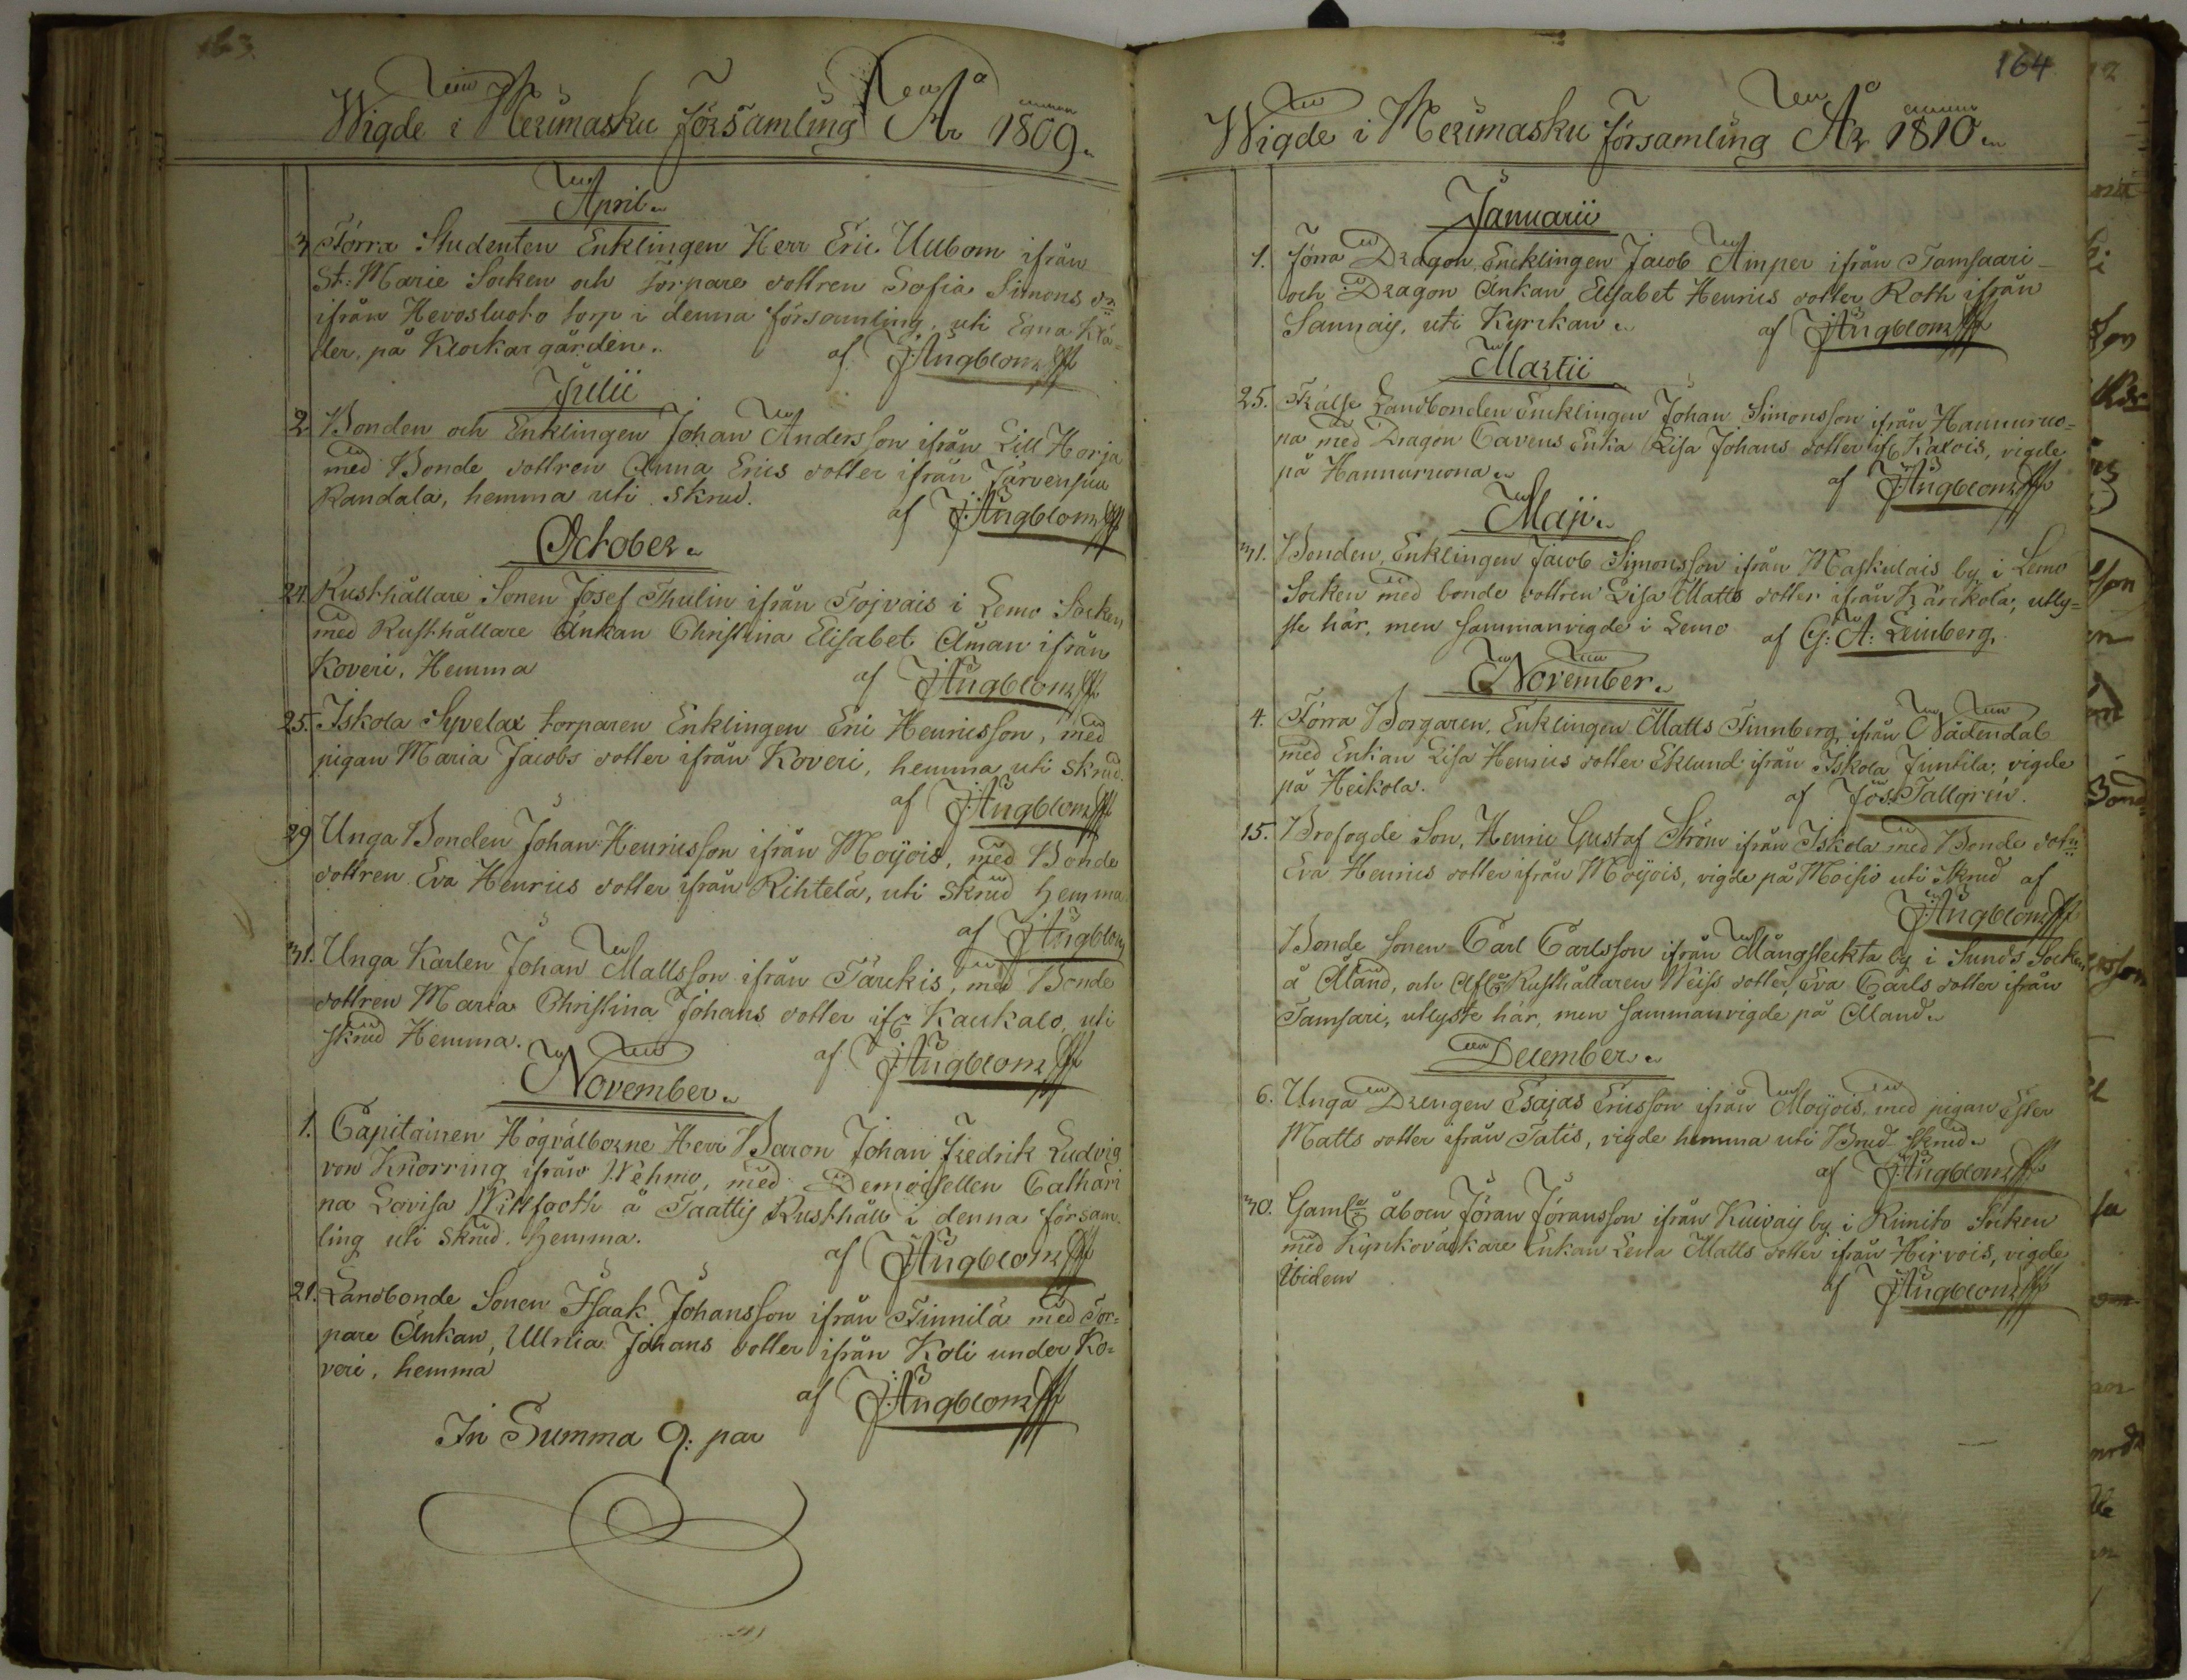 163
Wigde i Merimasku församling År 1809.
April.
3 Förra Studenten Enklingen Herr Eric Uulbom ifrån
St: Marie Socken och Torpare dottren Sofia Simons dr
ifrån Hevosluoto torp i denna församling, uti Egna Klä=
der, på Klockargården. af J: Ångblom
Julii
2 Bonden och Enklingen Johan Andersson ifrån Lill Horja
med Bonde dottren Anna Erics dotter ifrån Järvensuu
Randala, hemma uti Skrud. af J: Ångblom
October.
24. Rusthållare Sonen Josef Thulin ifrån Tojvais i Lemo Socken
med Rusthållare Änkan Christina Elisabet Åman ifrån
Koveri, Hemma af J: Ångblom
25. Iskola Syvelax torparen Enklingen Eric Henricsson, med
pigan Maria Jacobs dotter ifrån Koveri, hemma uti Skrud.
af J: Ångblom
29 Unga Bonden Johan Henricsson ifrån Moijois, med Bonde
dottren Eva Henrics dotter ifrån Rihtelä, uti Skrud hemma
af J: Ångblom
31. Unga Karlen Johan Mattsson ifrån Tärckis, med Bonde
dottren Maria Christina Johans dotter ifr Kaukalo, uti
Skrud Hemma. af J: Ångblom
November.
1. Capitainen Högvälborne Herr Baron Johan Fredrik Ludvig
von Knorring ifrån Wehmo, med Demoisellen Cathari
na Lovisa Wittfooth å Taattis Rusthåll i denna försam
ling uti Skrud. hemma. af J: Ångblom
21. Landbonde Sonen Isaak Johansson ifrån Finnilä med Tor=
pare Änkan, Ullrica Johans dotter ifrån Koli under Ko=
veri, hemma af J: Ångblom
In Summa 9: par
164
Wigde i Merimasku församling År 1810.
Januarii
1. Förra Dragon, Encklingen Jacob Amper ifrån Tamsaari
och Dragon Änkan Elisabet Henrics dotter Roth ifrån
Sannais, uti Kyrckan. af J: Ångblom
Martii
25. Frälse Landbonden Encklingen Johan Simonsson ifrån Hannuruo=
na med Dragon Cavens Enka Lisa Johans dotter ifr Kalois, vigde
på Hannuruona. af J: Ångblom
Maji.
31. Bonden, Enklingen Jacob Simonsson ifrån Maskulais by i Lemo
Socken med bonde dottren Lisa Matts dotter ifrån Kärckola, utly=
ste här, men sammanvigde i Lemo af G: A: Leinberg.
November.
4. Förra Borgaren, Enklingen Matts Finnberg, ifrån Nådendal
med Enkan Lisa Henrics dotter Eklund ifrån Iskola Juntila, vigde
på Heikola. af Jos: Tallgrén.
15. Brofogde Son, Henric Gustaf Ström ifrån Iskola med Bonde dotr
Eva Henrics dotter ifrån Moijois, vigde på Moisio uti Skrud af
J: Ångblom
Bonde sonen Carl Carlsson ifrån Mångsteckta by i Sunds Socken
å Åland, och Afl Rusthållaren Weiss dotter, Eva Carls dotter ifrån
Tamsari, utlyste här, men sammanvigde på Åland.
December.
6. Unga Drengen Esajas Ericsson ifrån Moijois, med pigan Ester
Matts dotter ifrån Tatis, vigde hemma uti Brud Skrud.
af J: Ångblom
30. Gaml åboen Jöran Jöransson ifrån Kuivais by i Rimito Socken
med Kyrkoväckare Enkan Lena Matts dotter ifrån Hirvois, vigde
Ibidem af J: Ångblom